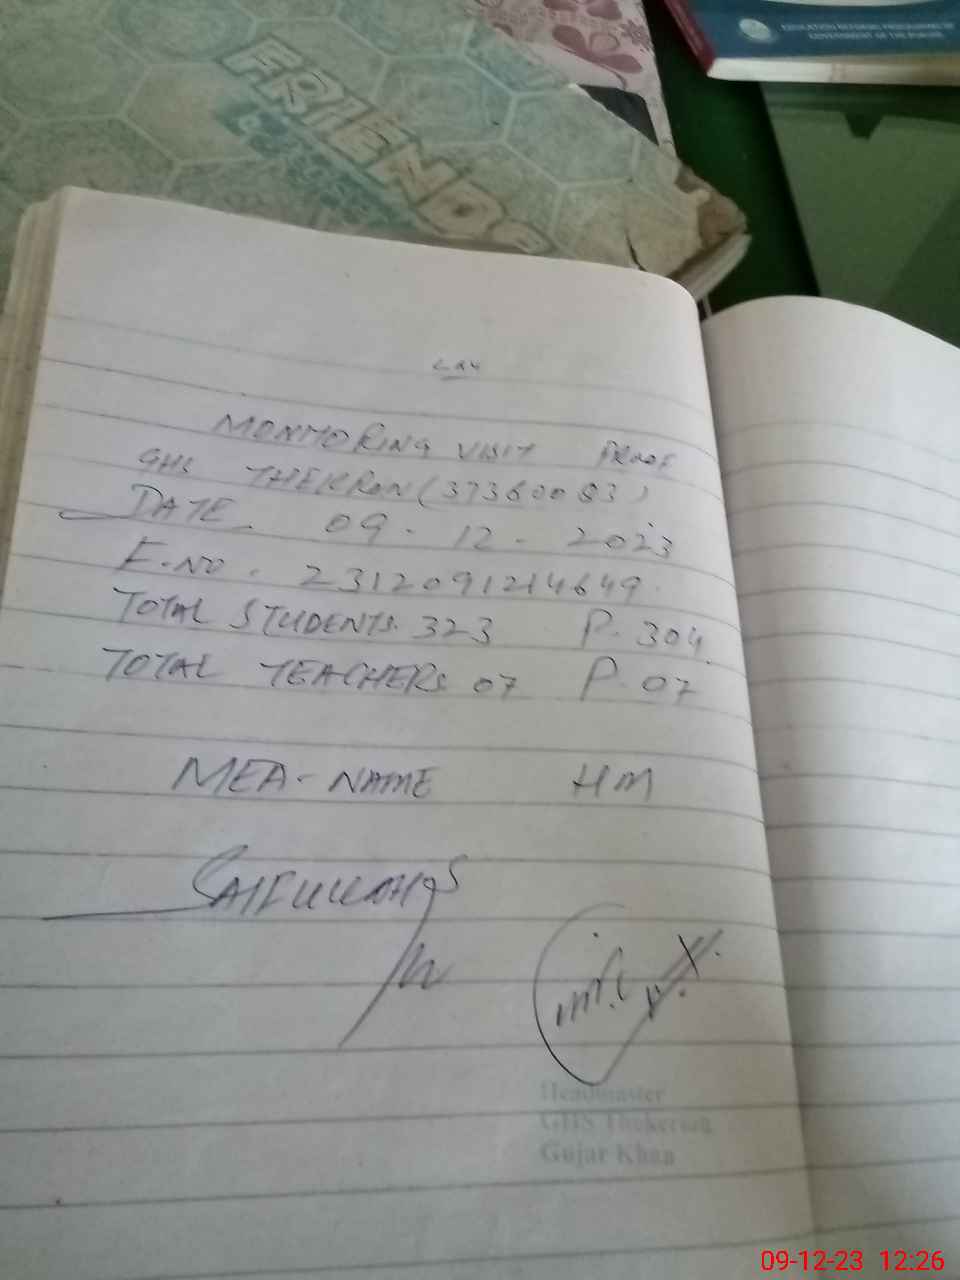 EDUCATION REFORMS PROGRAMME OF
GOVERNMENT OF THE PUNJAB
FRIENDS
MONITORING VISIT PROOF
GHS THEKRAN (37360083)
DATE. 09-12-2023
E.NO. 2312091214649.
TOTAL STUDENTS. 323 P. 304
TOTAL TEACHERS 07 P. 07
MEA-NAME HM
SAIFULLAH
Headmaster
GHS Thekerian
Gujar Khan
09-12-23 12:26